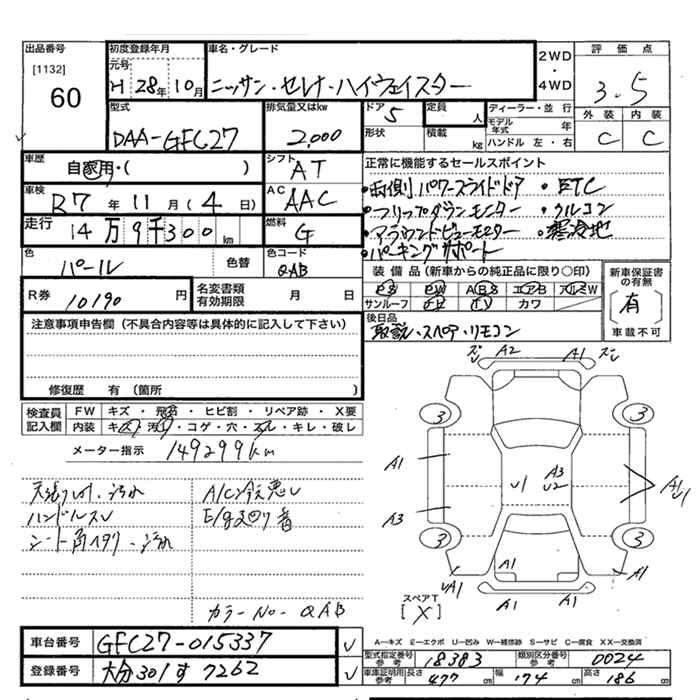 出品番号 初度登録年月 車名・グレード 2WD・4WD 評価点
[1132] 元号
60 H 28年 10月 ニッサン・セレナ・ハイウェイスター 3.5
型式 排気量又はkw ドア 5 定員 人 ディーラー・並行 外装 内装
DAA-GFC27 2,000 形状 積載 kg モデル年式 年 C C
ハンドル 左・右
車歴 自家用・( ) シフト AT 正常に機能するセールスポイント
車検 R7年 11月 (4日) AC AAC ・両側パワースライドドア ・ETC
走行 14万9千300km 燃料 G ・フリップダウンモニター ・クルコン
・アラウンドビューモニター ・寒冷地
・パーキングサポート
色 パール 色替 色コード QAB
装備品 (新車からの純正品に限り○印) 新車保証書の有無
R券 10190円 名変書類有効期限 月 日 PS PW ABS エアB アルミW
サンルーフ ナビ TV カワ (有)
後日品 車載不可
取説・スペア・リモコン
注意事項申告欄 (不具合内容等は具体的に記入して下さい)
修復歴 有 (箇所 )
検査員記入欄 FW キズ・飛石・ヒビ割・リペア跡・X要
内装 キズ・汚れ・コゲ・穴・スレ・キレ・破レ
メーター指示 149299km
A/C冷え悪し
ハンドルスレ
カラーNo- QAB
A2 A1
3 3
A1 U1 A3 U2 A1 U1
A3
3 3
A1 A1
A1 A1
スペアT
[X]
A―キズ E―エクボ U―凹み W―補修跡 S―サビ C―腐食 XX―交換済
車台番号 GFC27-015337 レ 型式指定番号 参考 18383 類別区分番号 参考 0024
登録番号 大分 301 す 7262 レ 車庫証明用 参考 長さ 477cm 幅 174cm 高さ 186cm